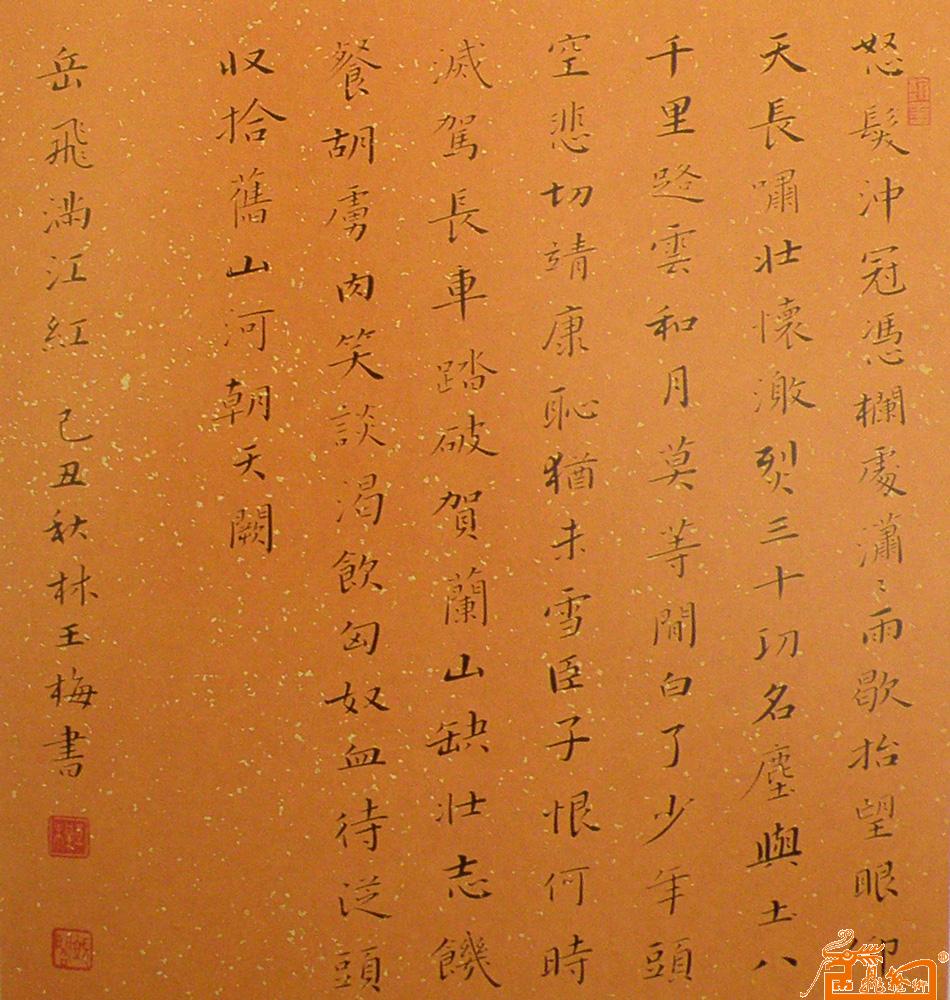 怒髮沖冠憑欄處瀟〻雨歇抬望眼仰
天長嘯壯懷激烈三十功名塵與土八
千里路雲和月莫等閒白了少年頭
空悲切靖康恥猶未雪臣子恨何時
滅駕長車踏破賀蘭山缺壯志饑
餐胡虜肉笑談渴飲匈奴血待從頭
收拾舊山河朝天闕
岳飛滿江紅 己丑秋林玉梅書